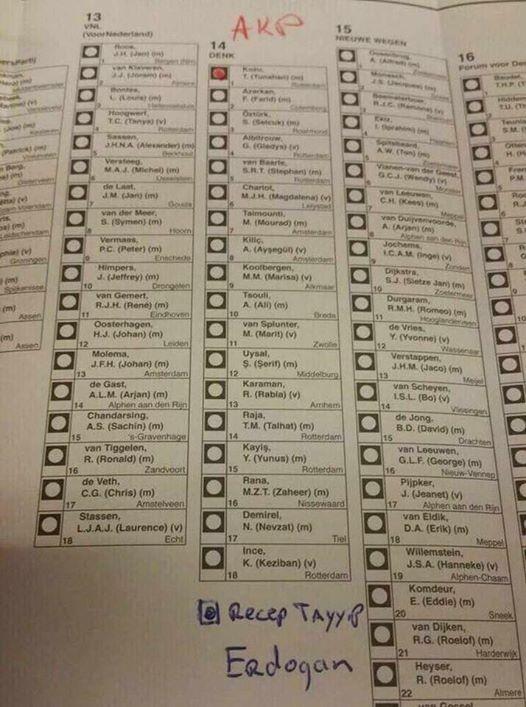 ersPartij
(m)
Assen
(m)
Assen
13
VNL
(VoorNederland)
Roos,
J.H. (Jan) (m)
1
van Klaveren,
J.J. (Joram) (m)
2
Almere
Bontes,
L. (Louis) (m)
3
Hoogwerf,
T.C. (Tanya) (v)
4
Rotterdam
Sassen,
J.H.N.A. (Alexander) (m)
5
Versteeg,
M.A.J. (Michel) (m)
6
IJsselstein
de Laat,
J.M. (Jan) (m)
7
Gouda
van der Meer,
S. (Symen) (m)
8
Hoorn
Vermaas,
P.C. (Peter) (m)
9
Enschede
Himpers,
J. (Jeffrey) (m)
10
Drongelen
van Gemert,
R.J.H. (René) (m)
11
Eindhoven
Oosterhagen,
H.J. (Johan) (m)
12
Leiden
Molema,
J.F.H. (Johan) (m)
13
Amsterdam
de Gast,
A.L.M. (Arjan) (m)
14
Alphen aan den Rijn
Chandarsing,
A.S. (Sachin) (m)
15
's-Gravenhage
van Tiggelen,
R. (Ronald) (m)
16
Zandvoort
de Veth,
C.G. (Chris) (m)
17
Amstelveen
Stassen,
L.J.A.J. (Laurence) (v)
18
Echt
AKP
14
DENK
Kuzu,
T. (Tunahan) (m)
1
Rotterdam
Azarkan,
F. (Farid) (m)
2
Culemborg
Öztürk,
S. (Selcuk) (m)
3
Roermond
Albitrouw,
G. (Gladys) (v)
4
Rotterdam
van Baarle,
S.R.T. (Stephan) (m)
5
Rotterdam
Charlot,
M.J.H. (Magdalena) (v)
6
Lelystad
Taimounti,
M. (Mourad) (m)
7
Amsterdam
Kiliç,
A. (Ayşegül) (v)
8
Amsterdam
Koolbergen,
M.M. (Marisa) (v)
9
Alkmaar
Tsouli,
A. (Ali) (m)
10
Breda
van Splunter,
M. (Marit) (v)
11
Zwolle
Uysal,
Ş. (Şerif) (m)
12
Middelburg
Karaman,
R. (Rabia) (v)
13
Arnhem
Raja,
T.M. (Talhat) (m)
14
Rotterdam
Kayiş,
Y. (Yunus) (m)
15
Rotterdam
Rana,
M.Z.T. (Zaheer) (m)
16
Nissewaard
Demirel,
N. (Nevzat) (m)
17
Tiel
Ince,
K. (Keziban) (v)
18
Rotterdam
Recep TAYYiP
Erdogan
15
NIEUWE WEGEN
A. (Alfred) (m)
1
Monasch,
J.S. (Jacques) (m)
2
R.J.C. (Ramona) (v)
3
Ekiz,
I. (Ibrahim) (m)
4
Spitsbaard,
A.W. (Ton) (m)
5
Vianen-van der Geest,
G.C.J. (Wendy) (v)
6
Monster
van Leeuwen,
C.H. (Kees) (m)
7
Meppel
van Duijvenvoorde,
A. (Arjan) (m)
8
Alphen aan den Rijn
Jochems,
I.C.A.M. (Inge) (v)
9
Zonden
Dijkstra,
S.J. (Sietze Jan) (m)
10
Zoetermeer
Durgaram,
R.M.H. (Romeo) (m)
11
Hooglanderveen
de Vries,
Y. (Yvonne) (v)
12
Wassenaar
Verstappen,
J.H.M. (Jaco) (m)
13
Meijel
van Scheyen,
I.S.L. (Bo) (v)
14
Vlissingen
de Jong,
B.D. (David) (m)
15
Drachten
van Leeuwen,
G.L.F. (George) (m)
16
Nieuw-Vennep
Pijpker,
J. (Jeanet) (v)
17
Alphen aan den Rijn
van Eldik,
D.A. (Erik) (m)
18
Meppel
Willemstein,
J.S.A. (Hanneke) (v)
19
Alphen-Chaam
Komdeur,
E. (Eddie) (m)
20
Sneek
van Dijken,
R.G. (Roelof) (m)
21
Harderwijk
Heyser,
R. (Roelof) (m)
22
Almere
16
Forum voor De
Baudet,
T.H.P. (T
1
Hiddem
T.U. (T
2